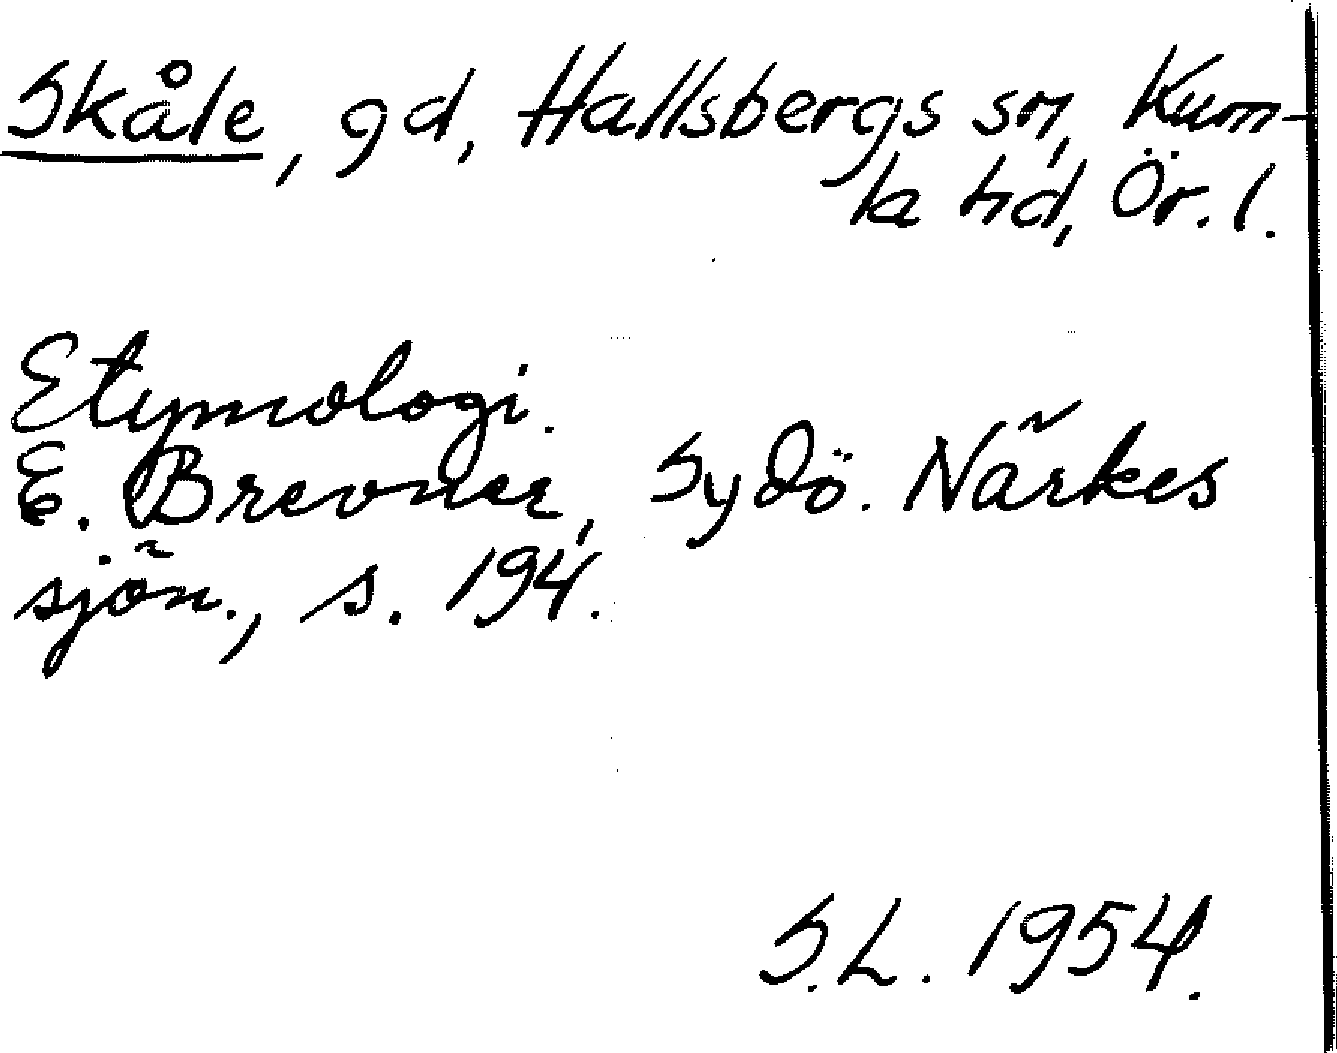 Skåle, gd, Hallsbergs sn, Kum-
la hd, Ör. l.
Etymologi.
E. Brevner, Sydö. Närkes
sjön., s. 194.
S.L. 1954.